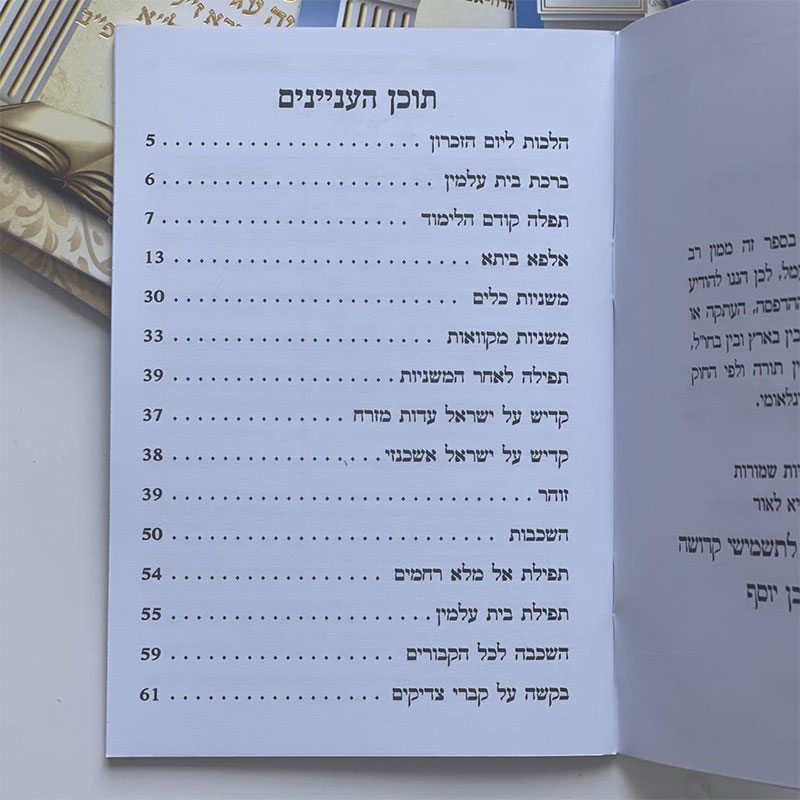 תוכן העניינים
הלכות ליום הזכרון 5
ברכת בית עלמין 6
תפלה קודם הלימוד 7
אלפא ביתא 13
משניות כלים 30
משניות מקוואות 33
תפילה לאחר המשניות 39
קדיש על ישראל עדות מזרח 37
קדיש על ישראל אשכנזי 38
זוהר 39
השכבות 50
תפילת אל מלא רחמים 54
תפילת בית עלמין 55
השכבה לכל הקבורים 59
בקשה על קברי צדיקים 61
בספר זה ממון רב
לכן הננו להודיע
ההדפסה, העתקה או
בין בארץ ובין בחו"ל,
תורה ולפי החוק
שמורות
לאור
לתשמישי קדושה
בן יוסף